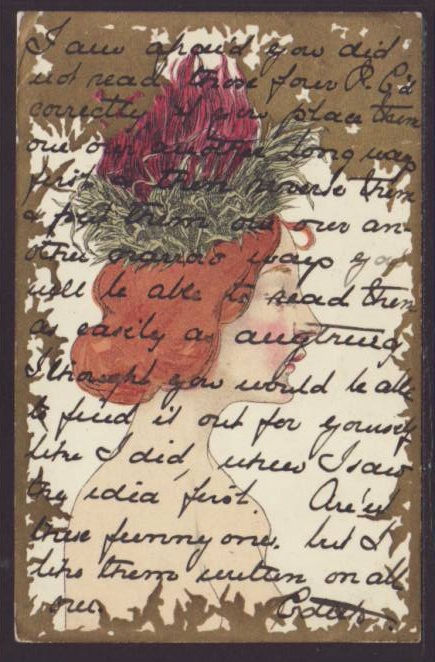 I am afraid you did
not read those four P.C's
correctly, if you place them
one over another long way
first & then reverse them
& put them one over an-
other narrow way you
will be able to read them
as easily as anything
I thought you would be able
to find it out for yourself
like I did, when I saw
the idea first. Are'nt
these funny one. but I
like them written on all
over.